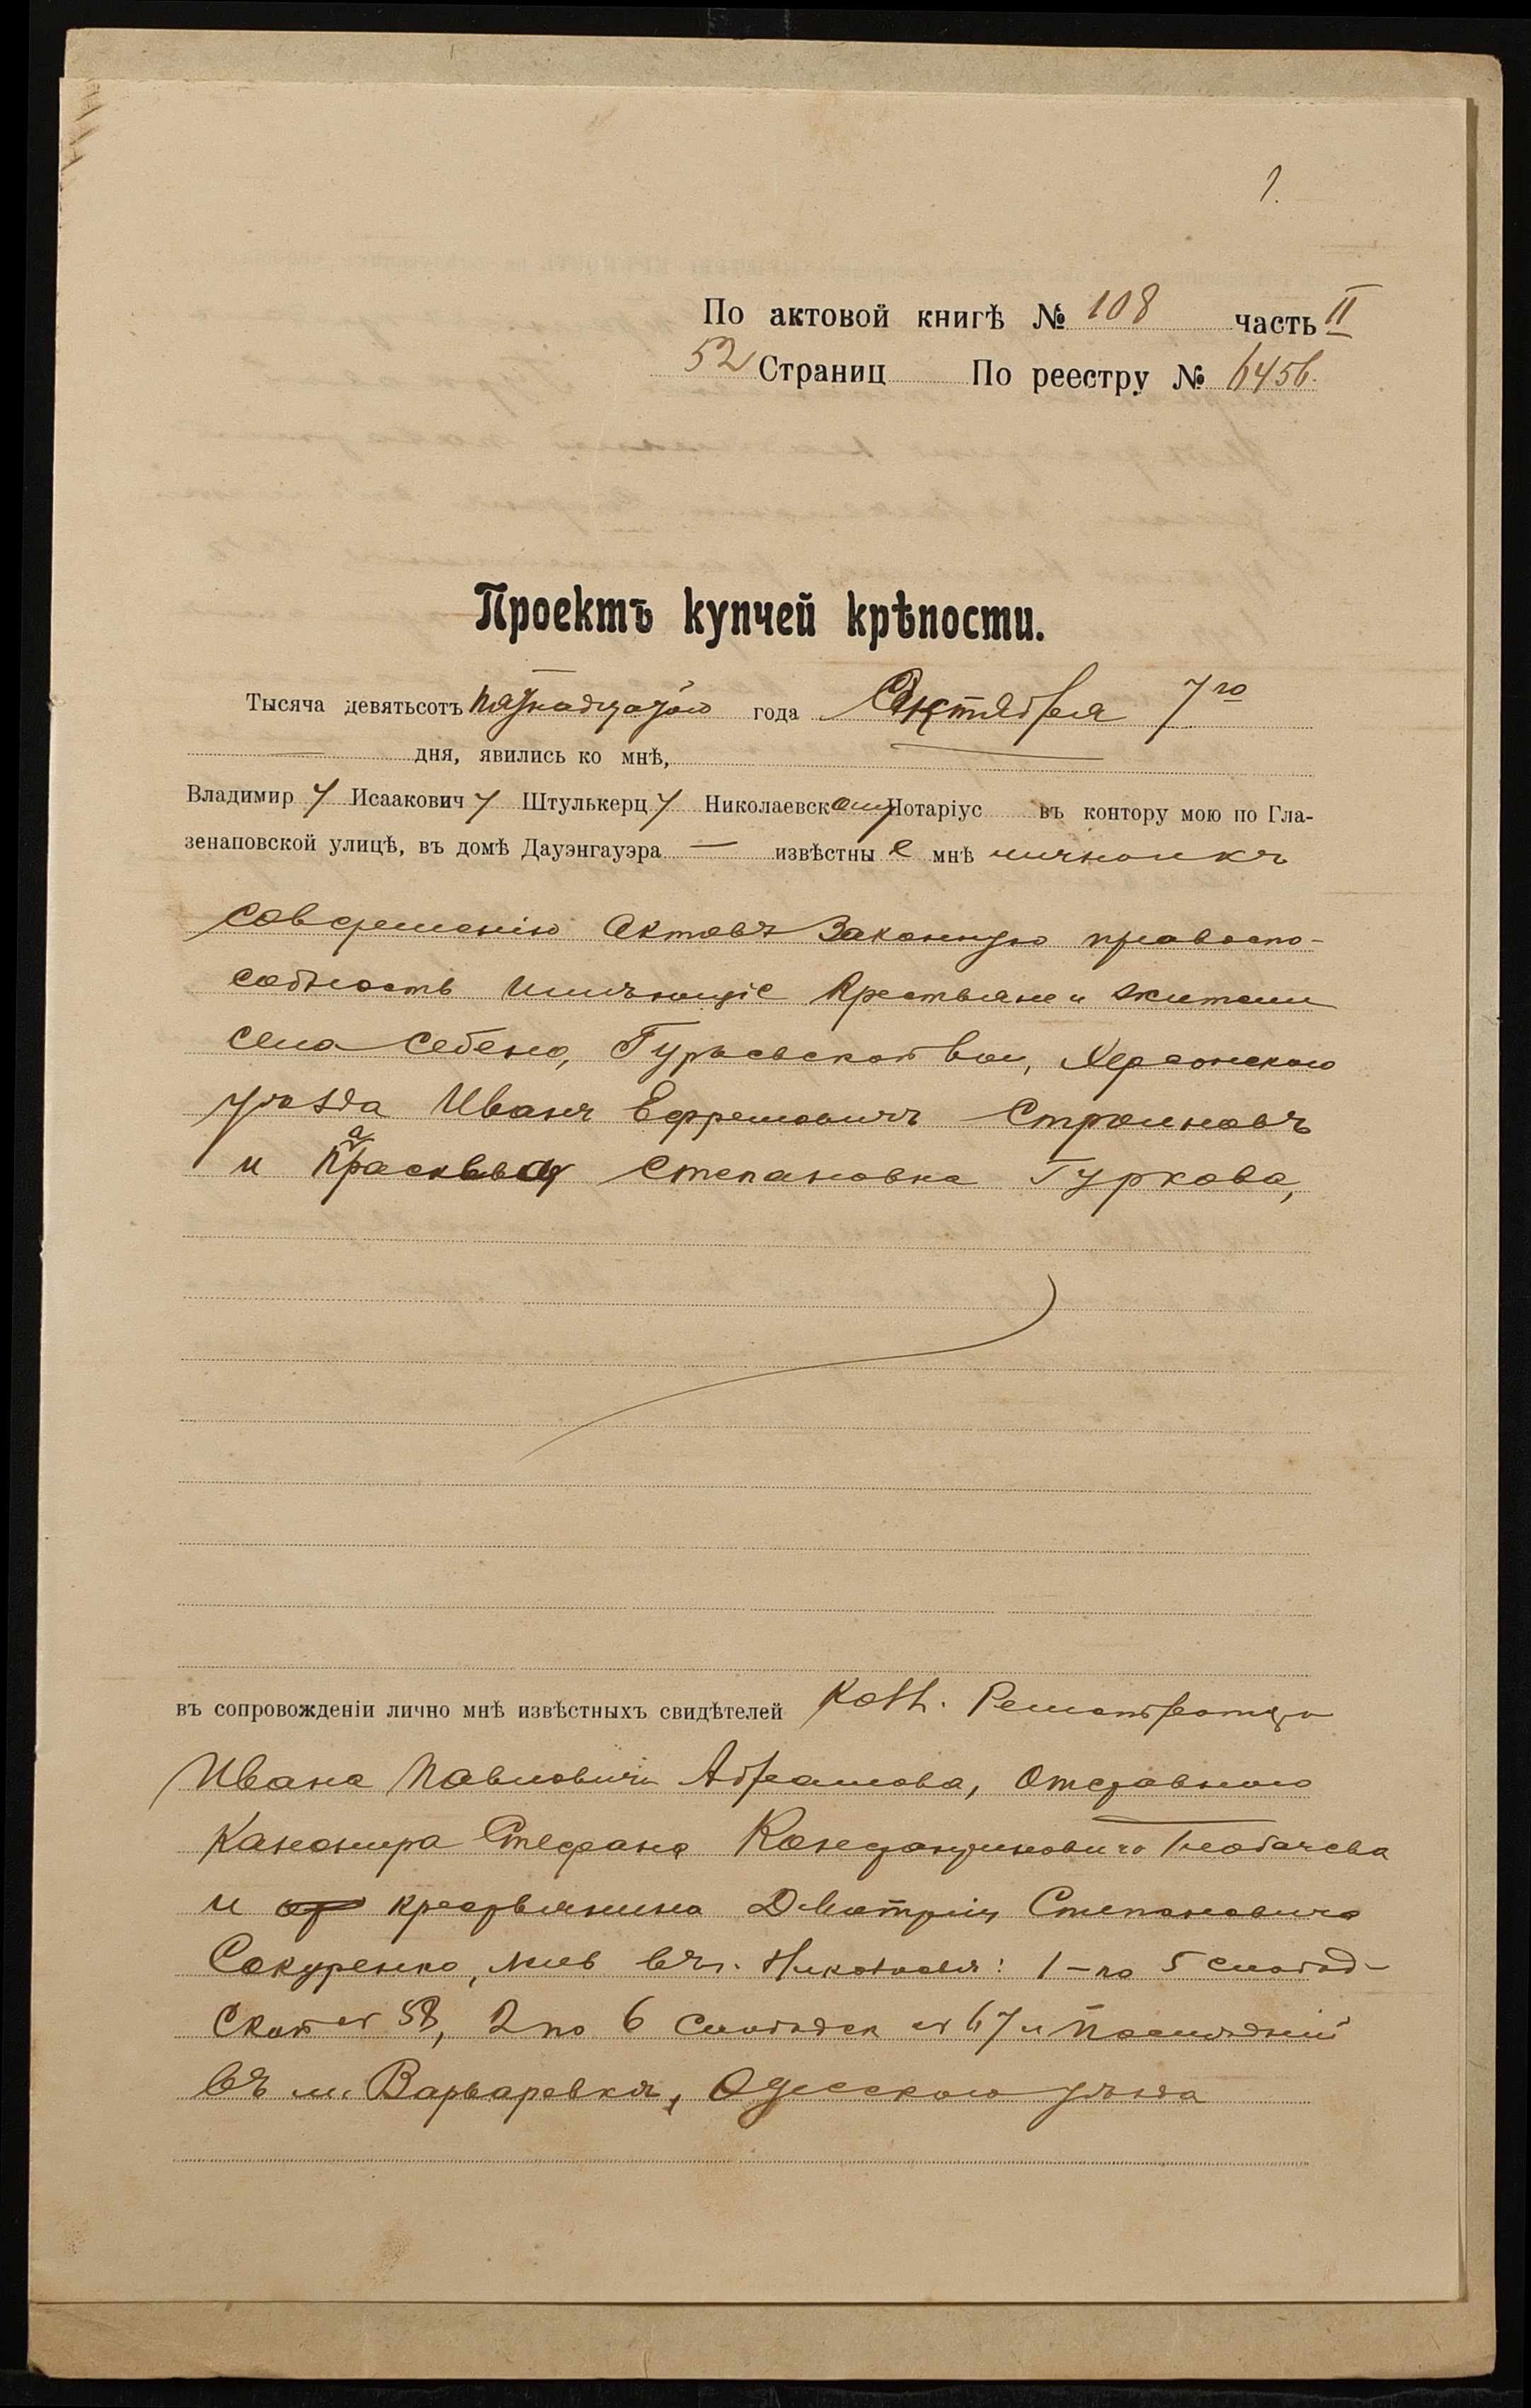 1.
По актовой книгѣ № 108 часть II
52 Страниц По реестру № 6456.
Проектъ купчей крѣпости.
Тысяча девятьсотъ пятнадцатого года Октября 7го
дня, явились ко мнѣ,
Владимир Исаакович Штулькерц Николаевск Нотаріус въ контору мою по Гла-
зенаповской улицѣ, въ домѣ Дауэнгауэра — извѣстны е мнѣ лично и къ
совершенію актовъ законную правоспо-
собность имѣющіе крестьяне и жители
села Себено, Гурьевской вол, Херсонского
уѣзда Иванъ Ефремович Строиновъ
и Парасковья Степановна Гуркова,
въ сопровожденіи лично мнѣ извѣстныхъ свидѣтелей Колл. Регистратора
Ивана Павловича Абрамова, Отставного
Канонира Стефана Константиновича
и крестьянина Дмитрія Степановича
Сокуренко, жив въ г. Николаевѣ: 1-по 5 Слобод-
ской № 58, 2 по 6 Слободск № 67 и послѣдній
въ м. Варваревкѣ, Одесского уѣзда